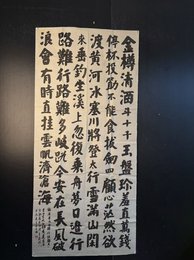 金樽清酒斗十千玉盤珍羞直萬錢
停杯投筯不能食拔劍四顧心茫然欲
渡黃河冰塞川將登太行雪滿山閑
來垂釣坐溪上忽復乘舟夢日邊行
路難行路難多岐路今安在長風破
浪會有時直挂雲帆濟滄海